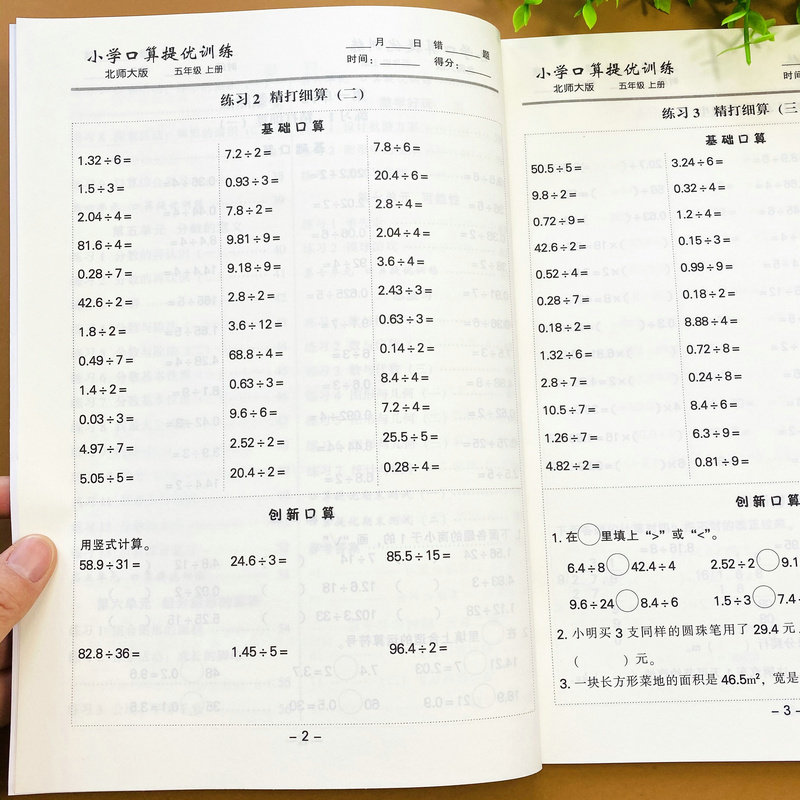 小学口算提优训练
北师大版 五年级 上册
月 日 错 题
时间: 得分:
练习2 精打细算(二)
基础口算
1.32÷6= 7.2÷2= 7.8÷6=
1.5÷3= 0.93÷3= 20.4÷6=
2.04÷4= 7.8÷2= 2.8÷4=
81.6÷4= 9.81÷9= 2.04÷4=
0.28÷7= 9.18÷9= 3.6÷4=
42.6÷2= 2.8÷2= 2.43÷3=
1.8÷2= 3.6÷12= 0.63÷3=
0.49÷7= 68.8÷4= 0.14÷2=
1.4÷2= 0.63÷3= 8.4÷4=
0.03÷3= 9.6÷6= 7.2÷4=
4.97÷7= 2.52÷2= 25.5÷5=
5.05÷5= 20.4÷2= 0.28÷4=
创新口算
用竖式计算。
58.9÷31= 24.6÷3= 85.5÷15=
82.8÷36= 1.45÷5= 96.4÷2=
–2–
小学口算提优训练
北师大版 五年级 上册
时间:
练习3 精打细算(三
基础口算
50.5÷5= 3.24÷6=
9.8÷2= 0.32÷4=
0.72÷9= 1.2÷4=
42.6÷2= 0.15÷3=
0.52÷4= 0.99÷9=
0.28÷7= 0.18÷2=
0.18÷2= 8.88÷4=
1.32÷6= 0.72÷8=
2.8÷7= 0.24÷8=
10.5÷7= 8.4÷6=
1.26÷7= 6.3÷9=
4.82÷2= 0.81÷9=
创新口算
1. 在○里填上“>”或“<”。
6.4÷8○42.4÷4 2.52÷2○9.1
9.6÷24○8.4÷6 1.5÷3○7.4
2. 小明买3支同样的圆珠笔用了29.4元
( )元。
3. 一块长方形菜地的面积是46.5m²,宽是
–3–